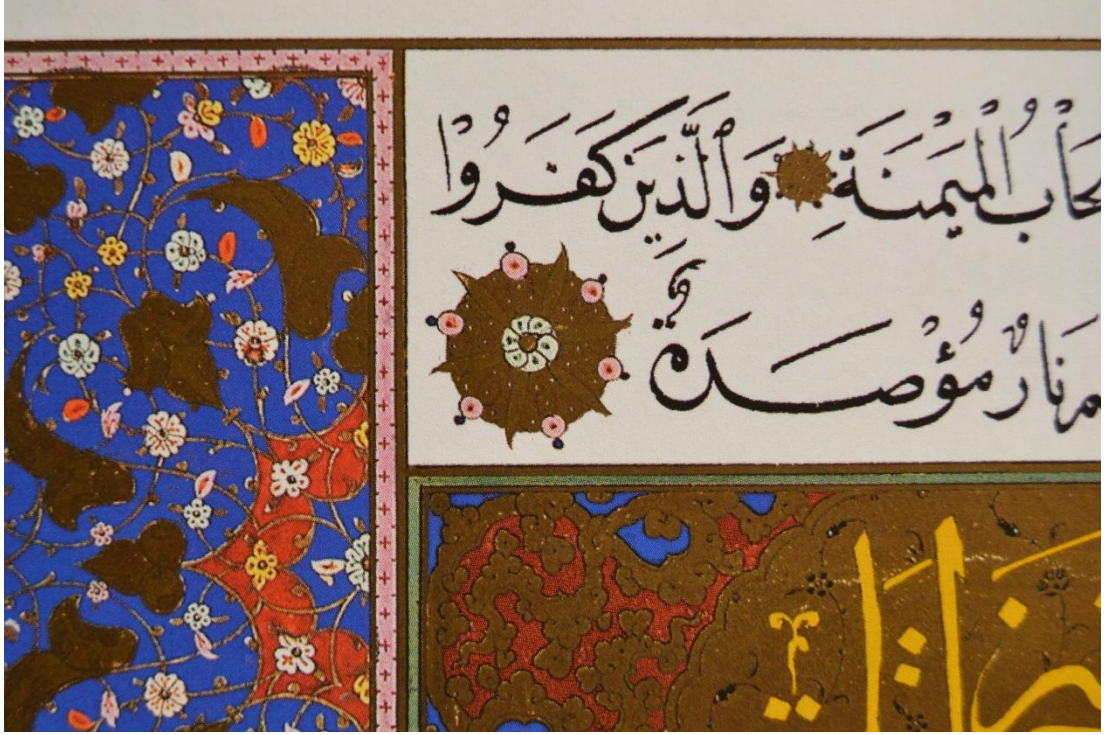 حَابُ الْمَيْمَنَةِ وَالَّذِينَ كَفَرُوا
نَارٌ مُؤْصَدَةٌ